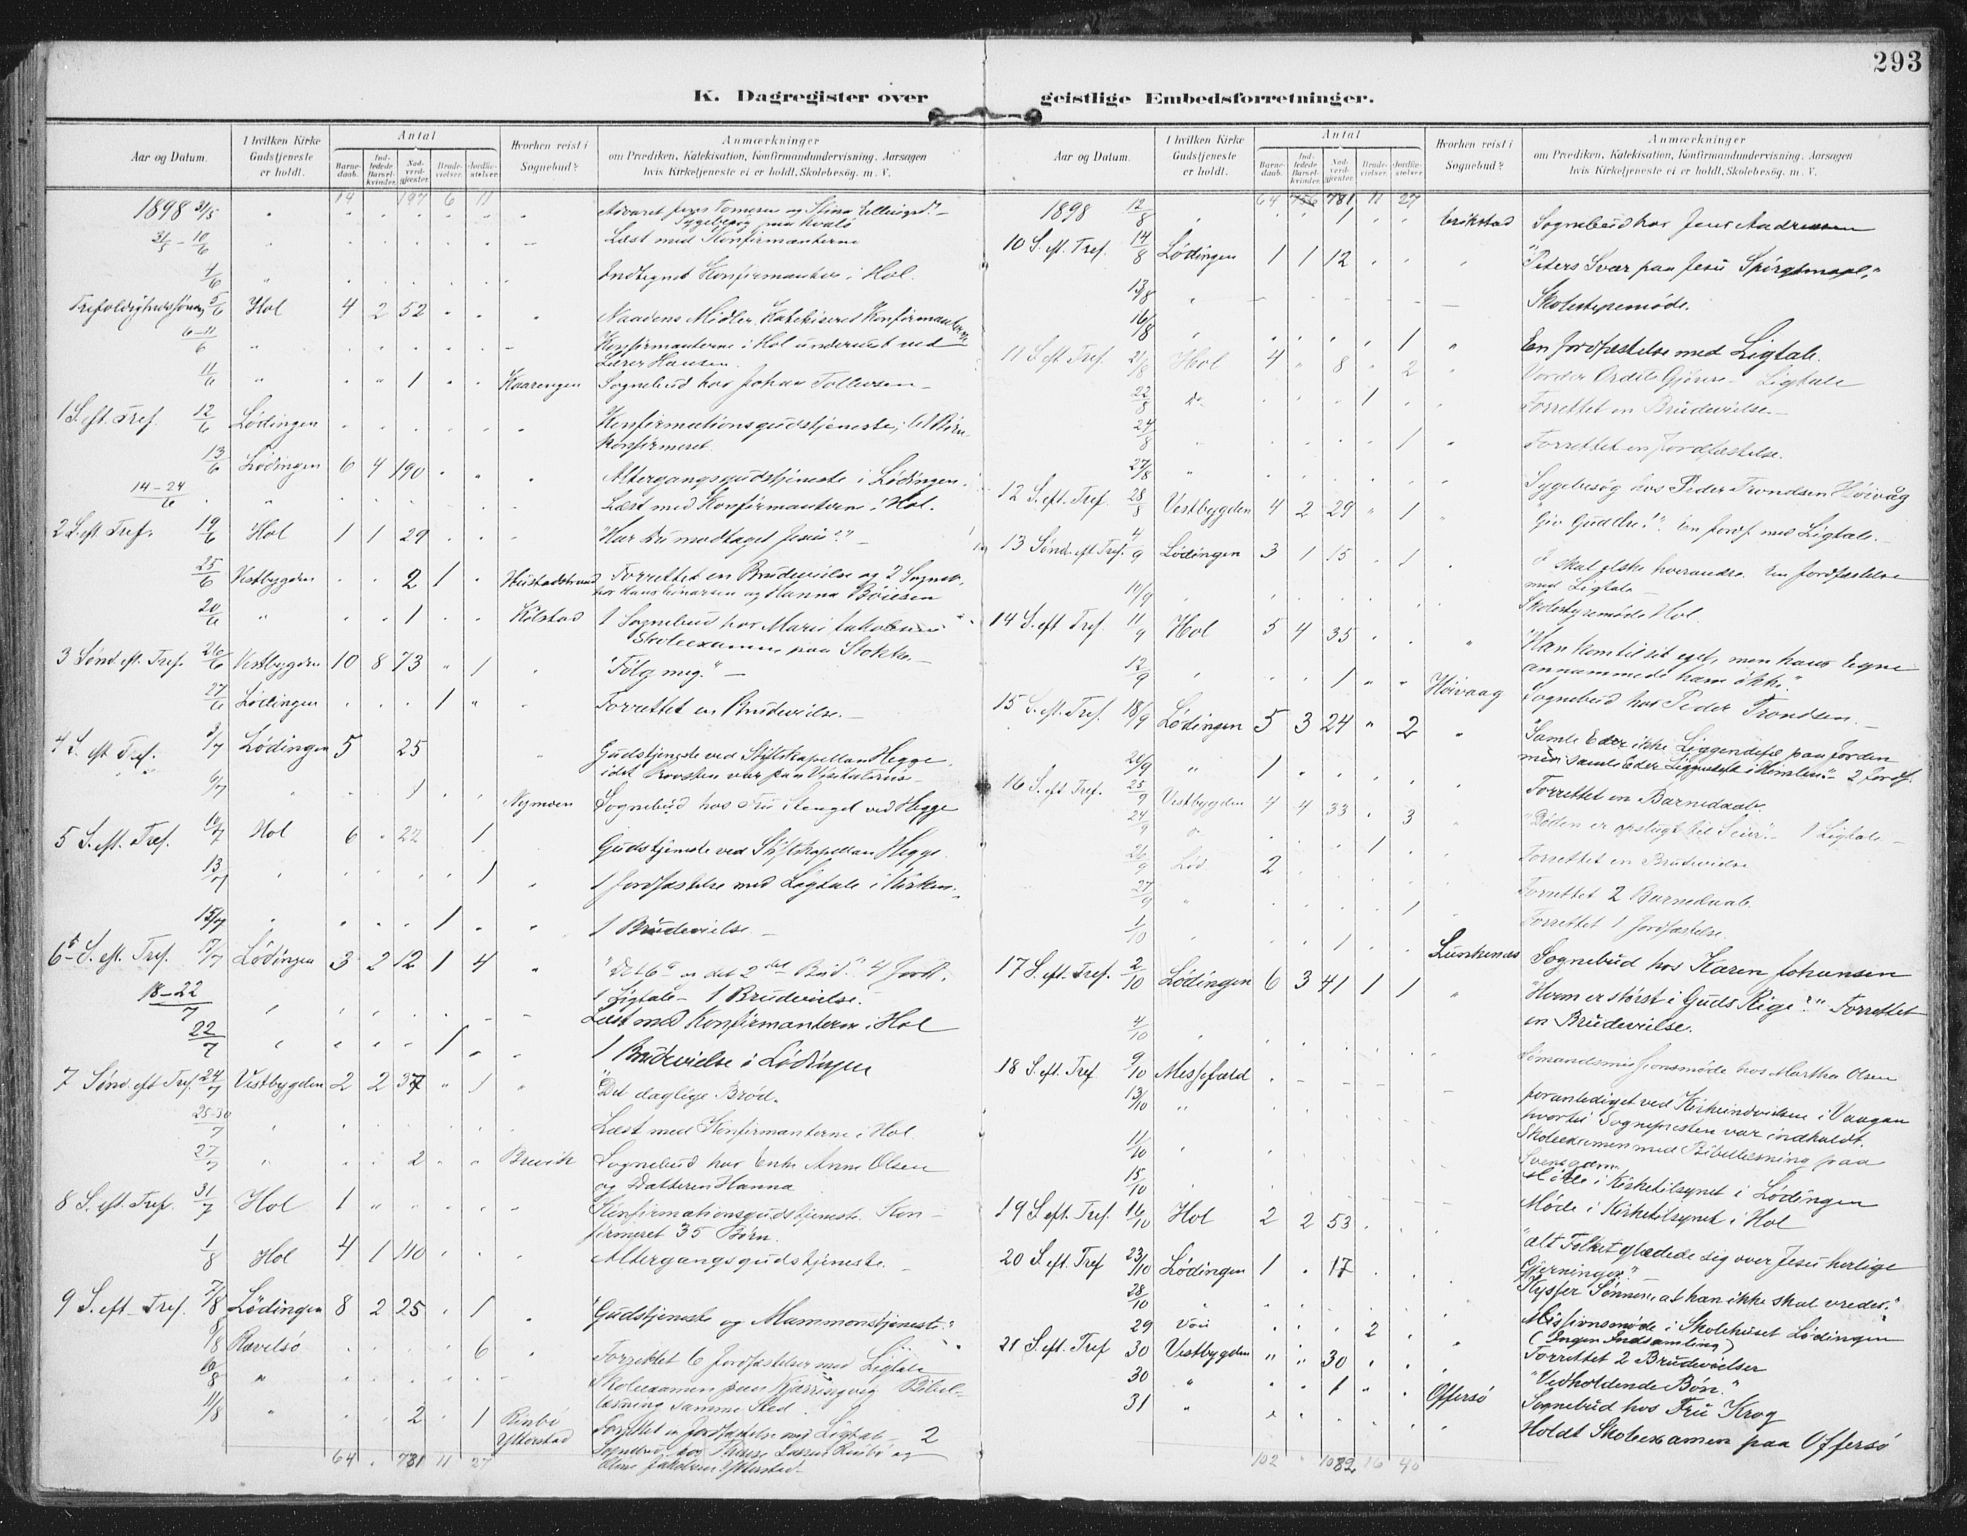 293
K. Dagregister over geistlige Embedsforretninger.
Aar og Datum. I hvilken Kirke Gudstjeneste er holdt. Antal Barnedaab. Indledede Barselkvinder. Nadverdgjester. Brudevielser. Jordfæstelser. Hvorhen reist i Sognebud? Anmærkninger om Prædiken, Katekisation, Konfirmandundervisning. Aarsagen hvis Kirketjeneste ei er holdt. Skolebesøg. m. V.
14 197 6 11
1898 31/5
31/5 - 10/6 Læst med Konfirmanterne
1/6 Indtegnet Konfirmanter i Hol.
Trefoldighedssøndag 5/6 Hol 4 2 52 Naadens Midler. Katekiseret Konfirmanterne
6-11/6 Konfirmanterne i Hol underviist ved
Lærer Hansen.
11/6 1 Kaarengen Sognebud hos Johan Tollevsen
1 S. eft. Tref. 12/6 Lødingen Konfirmationsgudstjeneste,
konfirmeret.
13/6 Lødingen 6 4 190 Altergangsgudstjeneste i Lødingen.
14-24/6 Læst med Konfirmanterne i Hol.
2 S. eft. Tref. 19/6 Hol 1 1 29 "Har du modtaget Jesus?"
25/6 Vestbygden 2 1 Forrettet en Brudevielse og 2 Sogneb.
og Hanna Boiesen
20/6 1 Kølstad 1 Sognebud hos Marie
Skoleexamen paa Stokke
3 Sønd. eft. Tref. 26/6 Vestbygden 10 8 73 1 "Følg mig."
27/6 Lødingen 1 Forrettet en Brudevielse.
4 S. eft Tref. 3/7 Lødingen 5 25 Gudstjeneste ved Stiftskapellan Hegge,
idet Provsten var paa Visitatsreise
6/7 1 Nymoen Sognebud hos Fru Stengel ved Hegge
5 S. eft. Tref. 10/7 Hol 6 22 1 Gudstjeneste ved Stiftskapellan Hegge
13/7 1 1 Jordfæstelse med Ligtale i Kirken.
15/7 1 1 Brudevielse
6te S. eft. Tref. 17/7 Lødingen 3 2 12 1 4 "Det 6te og det 2det Bud." 4 Jordf.
1 Ligtale - 1 Brudevielse.
18-22/7 Læst med Konfirmanterne i Hol
22/7 1 1 Brudevielse i Lødingen
7 Sønd. eft Tref. 24/7 Vestbygden 2 2 37 1 "Det daglige Brød.
25-30/7 Læst med Konfirmanterne i Hol
27/7 2 Brevik Sognebud hos Enke Anne Olsen
og Datteren Hanna
8 S. eft. Tref. 31/7 Hol 1 Konfirmationsgudstjeneste. Kon-
firmeret 35 Børn.
1/8 Hol 4 1 110 Altergangsgudstjeneste.
9 S. eft. Tref. 7/8 Lødingen 8 2 25 1 "Gudstjeneste og Mammonstjeneste."
8/8 Rævelsø 6 Forrettet 6 Jordfæstelser med Ligtale
10/8 Skoleexamen paa Kjærringvig Bibel-
læsning samme Sted.
11/8 2 1 Rinbø Forrettet en Jordfæstelse med Ligtale 2
Ytterstad Sognebud hos Rinbø og
Oline Jakobsen Ytterstad
64 781 11 27
Aar og Datum. I hvilken Kirke Gudstjeneste er holdt. Antal Barnedaab. Indledede Barselkvinder. Nadverdgjester. Brudevielser. Jordfæstelser. Hvorhen reist i Sognebud? Anmærkninger om Prædiken, Katekisation, Konfirmandundervisning. Aarsagen hvis Kirketjeneste ei er holdt. Skolebesøg. m. V.
64 781 11 27
1898 12/8 1 Erikstad Sognebud hos Jens Andreassen
10 S. eft. Tref. 14/8 Lødingen 1 1 12 "Peters Svar paa Jesu Spørgsmaal."
13/8 Skolestyremøde.
16/8 1 En Jordfæstelse med Ligtale.
11 S. eft Tref. 21/8 Hol 4 8 2 Vorder Ordets Gjørere - Ligtale
22/8 Do 1 Forrettet en Brudevielse.
24/8 1 Forrettet en Jordfæstelse.
27/8 Sygebesøg hos Peder Trondsen Høivåg
12 S. eft. Tref. 28/8 Vestbygden 4 2 29 1 "Giv Gud Ære!". En Jordf. med Ligtale.
13 Sønd. eft Tref. 4/9 Lødingen 3 1 15 1 I skal elske hverandre. En Jordfæstelse
med Ligtale
10/9 Skolestyremøde Hol.
14 S. eft Tref. 11/9 Hol 5 4 35 "Han kom til sit eget, men hans Egne
annammede ham ikke."
12/9 1 Høivaag Sognebud hos Peder Trondsen.
15 S. eft. Tref. 18/9 Lødingen 5 3 24 2 "Samle Eder ikke Liggendefæ paa Jorden
men samle Eder Liggendefæ i Himlen." 2 Jordf.
20/9 1 Forrettet en Barnedaab.
16 S. eft Tref. 25/9 Vestbygden 4 4 33 3 "Døden er opslugt til Seier." 1 Ligtale
24/9 1 Forrettet en Brudevielse
26/9 Lød 2 Forrettet 2 Barnedaab.
27/9 1 Forrettet 1 Jordfæstelse.
1/10 1 Lunkenæs Sognebud hos Karen Johansen
17 S. eft. Tref. 2/10 Lødingen 6 3 41 1 1 "Hvem er størst i Guds Rige?" Forrettet
en Brudevielse.
4/10 Sømandsmissionsmøde hos Martha Olsen
18 S. eft. Tref 9/10 Messefald foranlediget ved Kirkeindvielsen i Vaagan
hvortil Sognepresten var indkaldt.
13/10 Skoleexamen med Bibellæsning paa
11/10 Møde i Kirketilsynet i Lødingen
15/10 Møde i Kirketilsynet i Hol
19 S eft. Tref. 16/10 Hol 2 2 53 "alt Folket glædede sig over Jesu herlige
Gjerninger."
20 S. eft. Tref 23/10 Lødingen 1 17 "Kysser Sønnen, at han ikke skal vredes."
28/10 Missionsmøde i Skolehuset Lødingen
(Ingen Indsamling)
29 2 Forrettet 2 Brudevielser
21 S. eft. Tref 30 Vestbygden 30 "Vedholdende Bøn."
30 1 Offersø Sognebud hos Fru Krog
31 Holdt Skoleexamen paa Offersø
102 1082 16 40